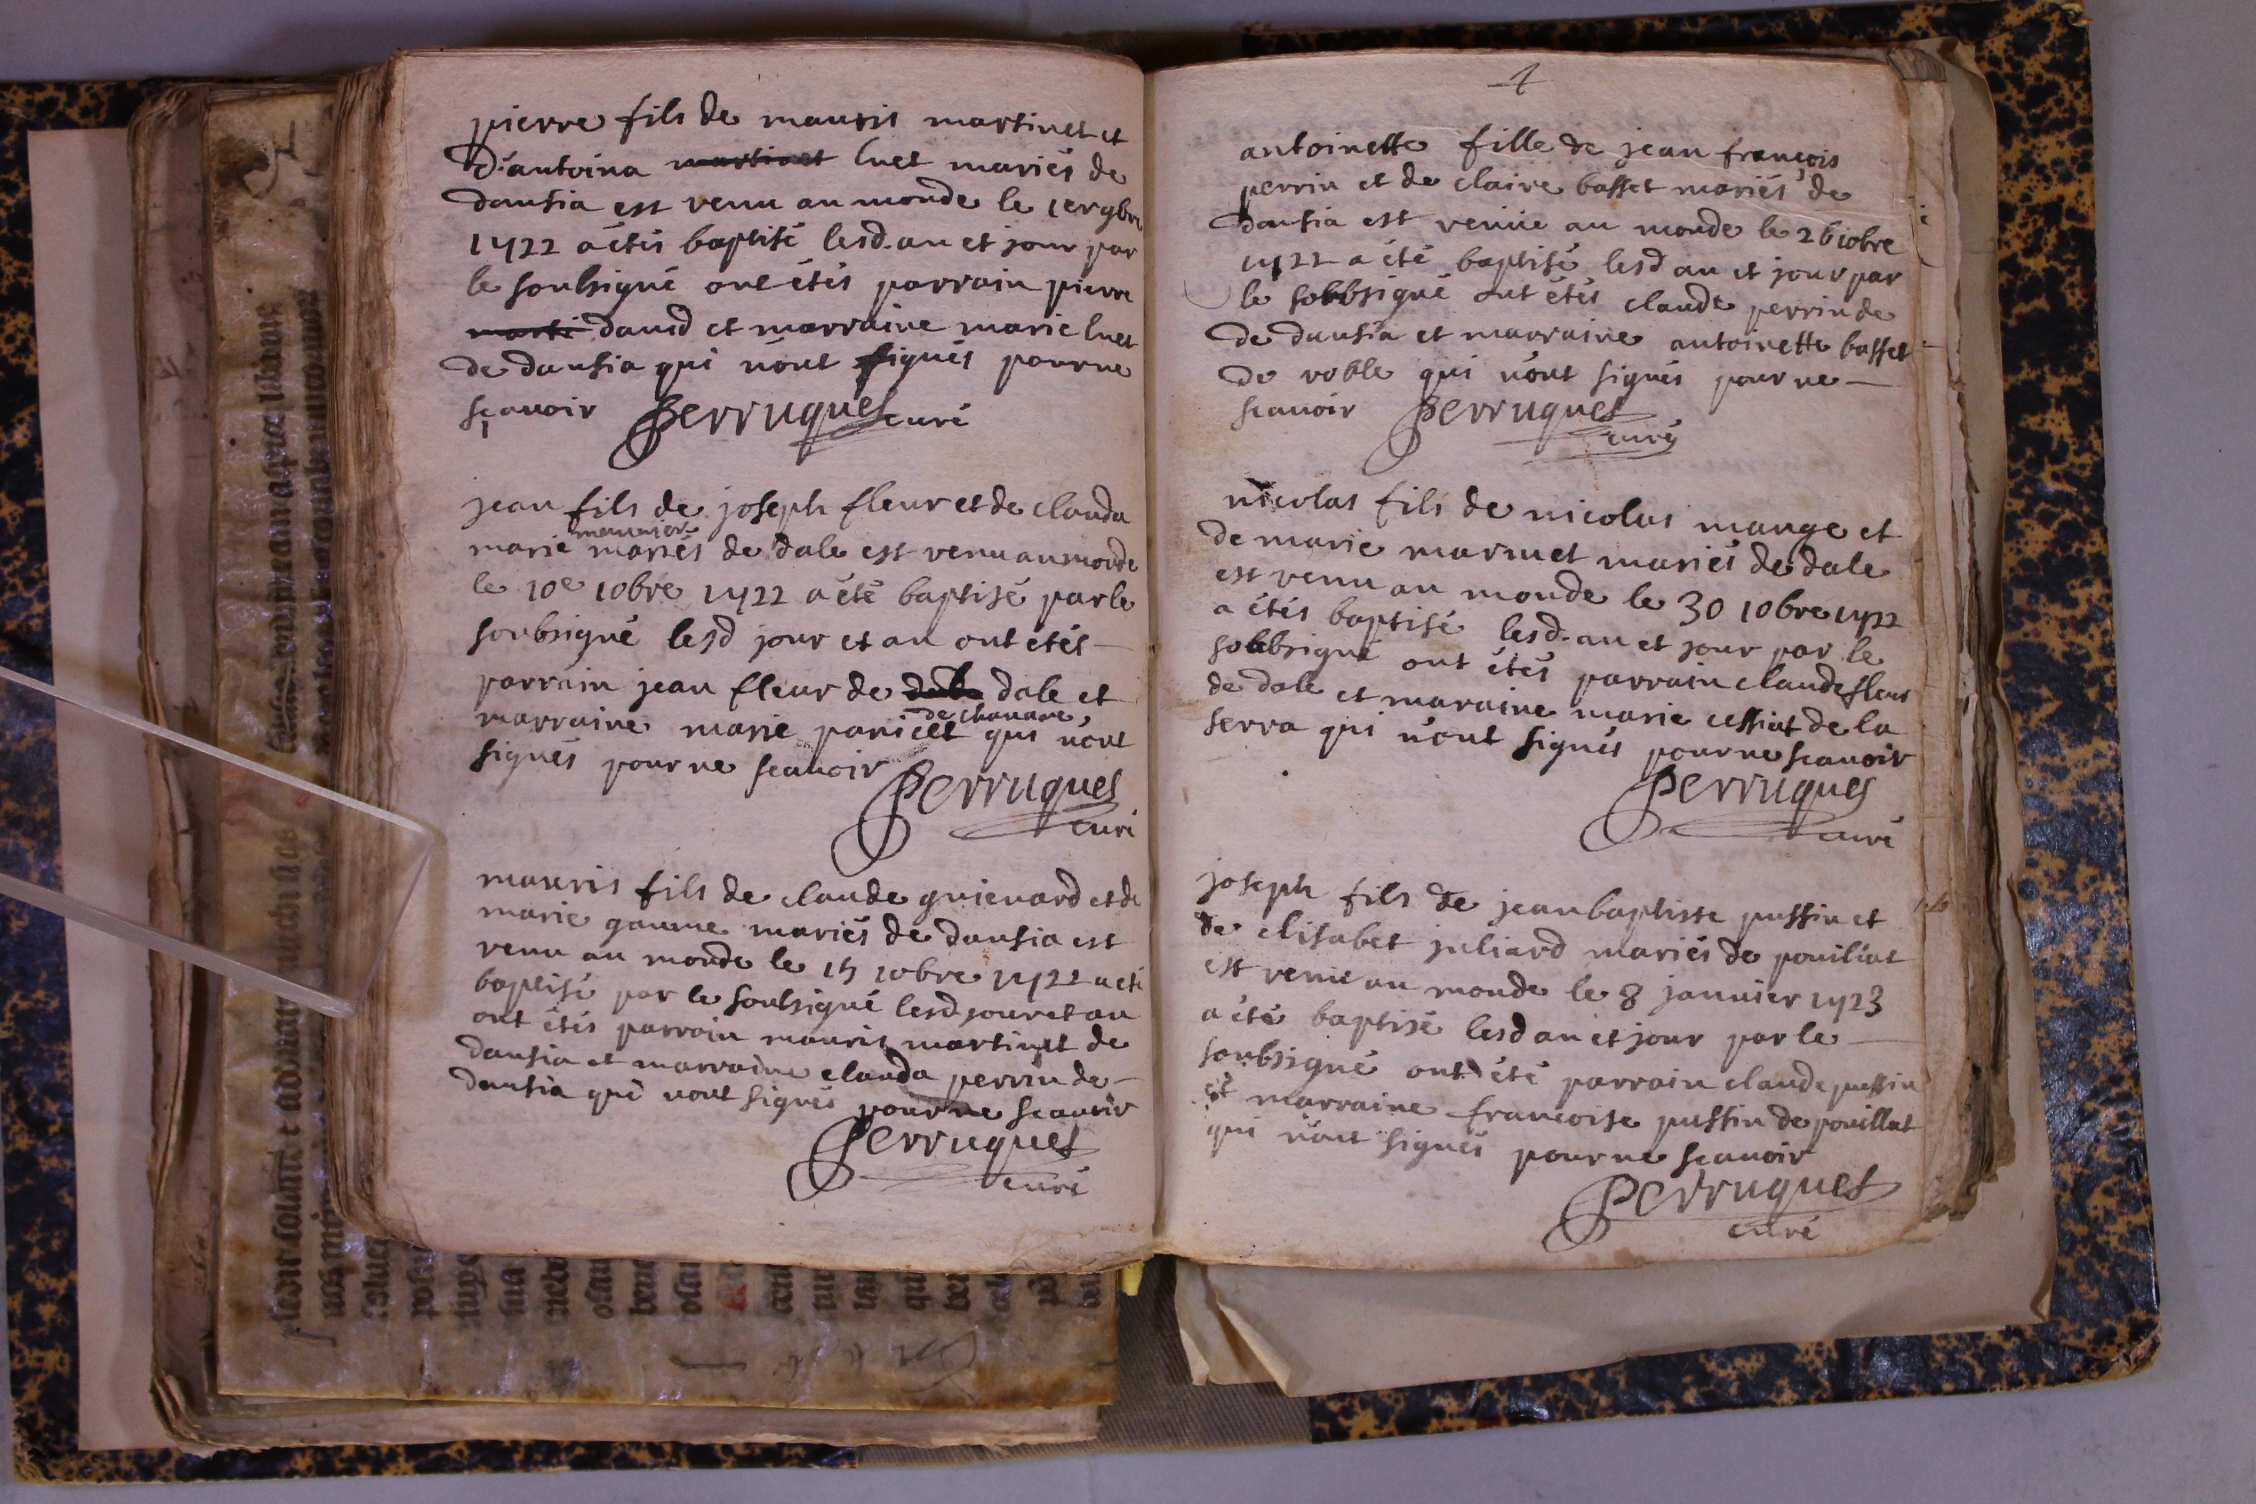 pierre fils de mauris martinet et
d'antoina martinet luet mariés de
dansia est venu au monde le 1er 9bre
1722 a étés baptisé lesd. an et jour par
le soubsigné ont étés parrain pierre
marti david et marraine marie luet
de dansia qui n'ont signés pour ne
sçavoir Perruquet curé
jean fils de joseph fleur et de clauda
meunier
marie mariés de dale est venu au monde
le 10e 10bre 1722 a été baptisé par le
soubsigné lesd jour et an ont étés
parrain jean fleur de dale et
de chanane
marraine marie paniset qui n'ont
signés pour ne scauoir
Perruquet
curé
mauris fils de claude guienard et de
marie gaume mariés de dansia est
venu au monde le 15 10bre 1722 a été
baptisé par le soubsigné lesd jour et an
ont étés parrain mauris martinet de
dansia et marraine clauda perrin de
dansia qui n'ont signés pour ne scauoir
Perruquet
curé
4
antoinette fille de jean françois
perrin et de claire basset mariés de
dansia est venüe au monde le 26 10bre
1722 a été baptisé lesd an et jour par
le sobbsigné ont étés claude perrin de
de dansia et marraine antoinette basset
de roble qui n'ont signés pour ne
scauoir Perruquet
curé
nicolas fils de nicolas mange et
de marie marmet mariés de dale
est venu au monde le 30 10bre 1722
a étés baptisé lesd. an et jour par le
sobbsigné ont étés parrain claude fleur
de dale et maraine marie cessiat de la
serra qui n'ont signés pour ne scauoir
Perruquet
curé
joseph fils de jean baptiste pussin et
de elisabet juliard mariés de pouiliat
est venu au monde le 8 januier 1723
a été baptisé lesd an et jour par le
soubsigné ont été parrain claude pussin
et marraine francoise pussin de pouillat
qui n'ont signés pour ne scauoir
Perruquet
curé